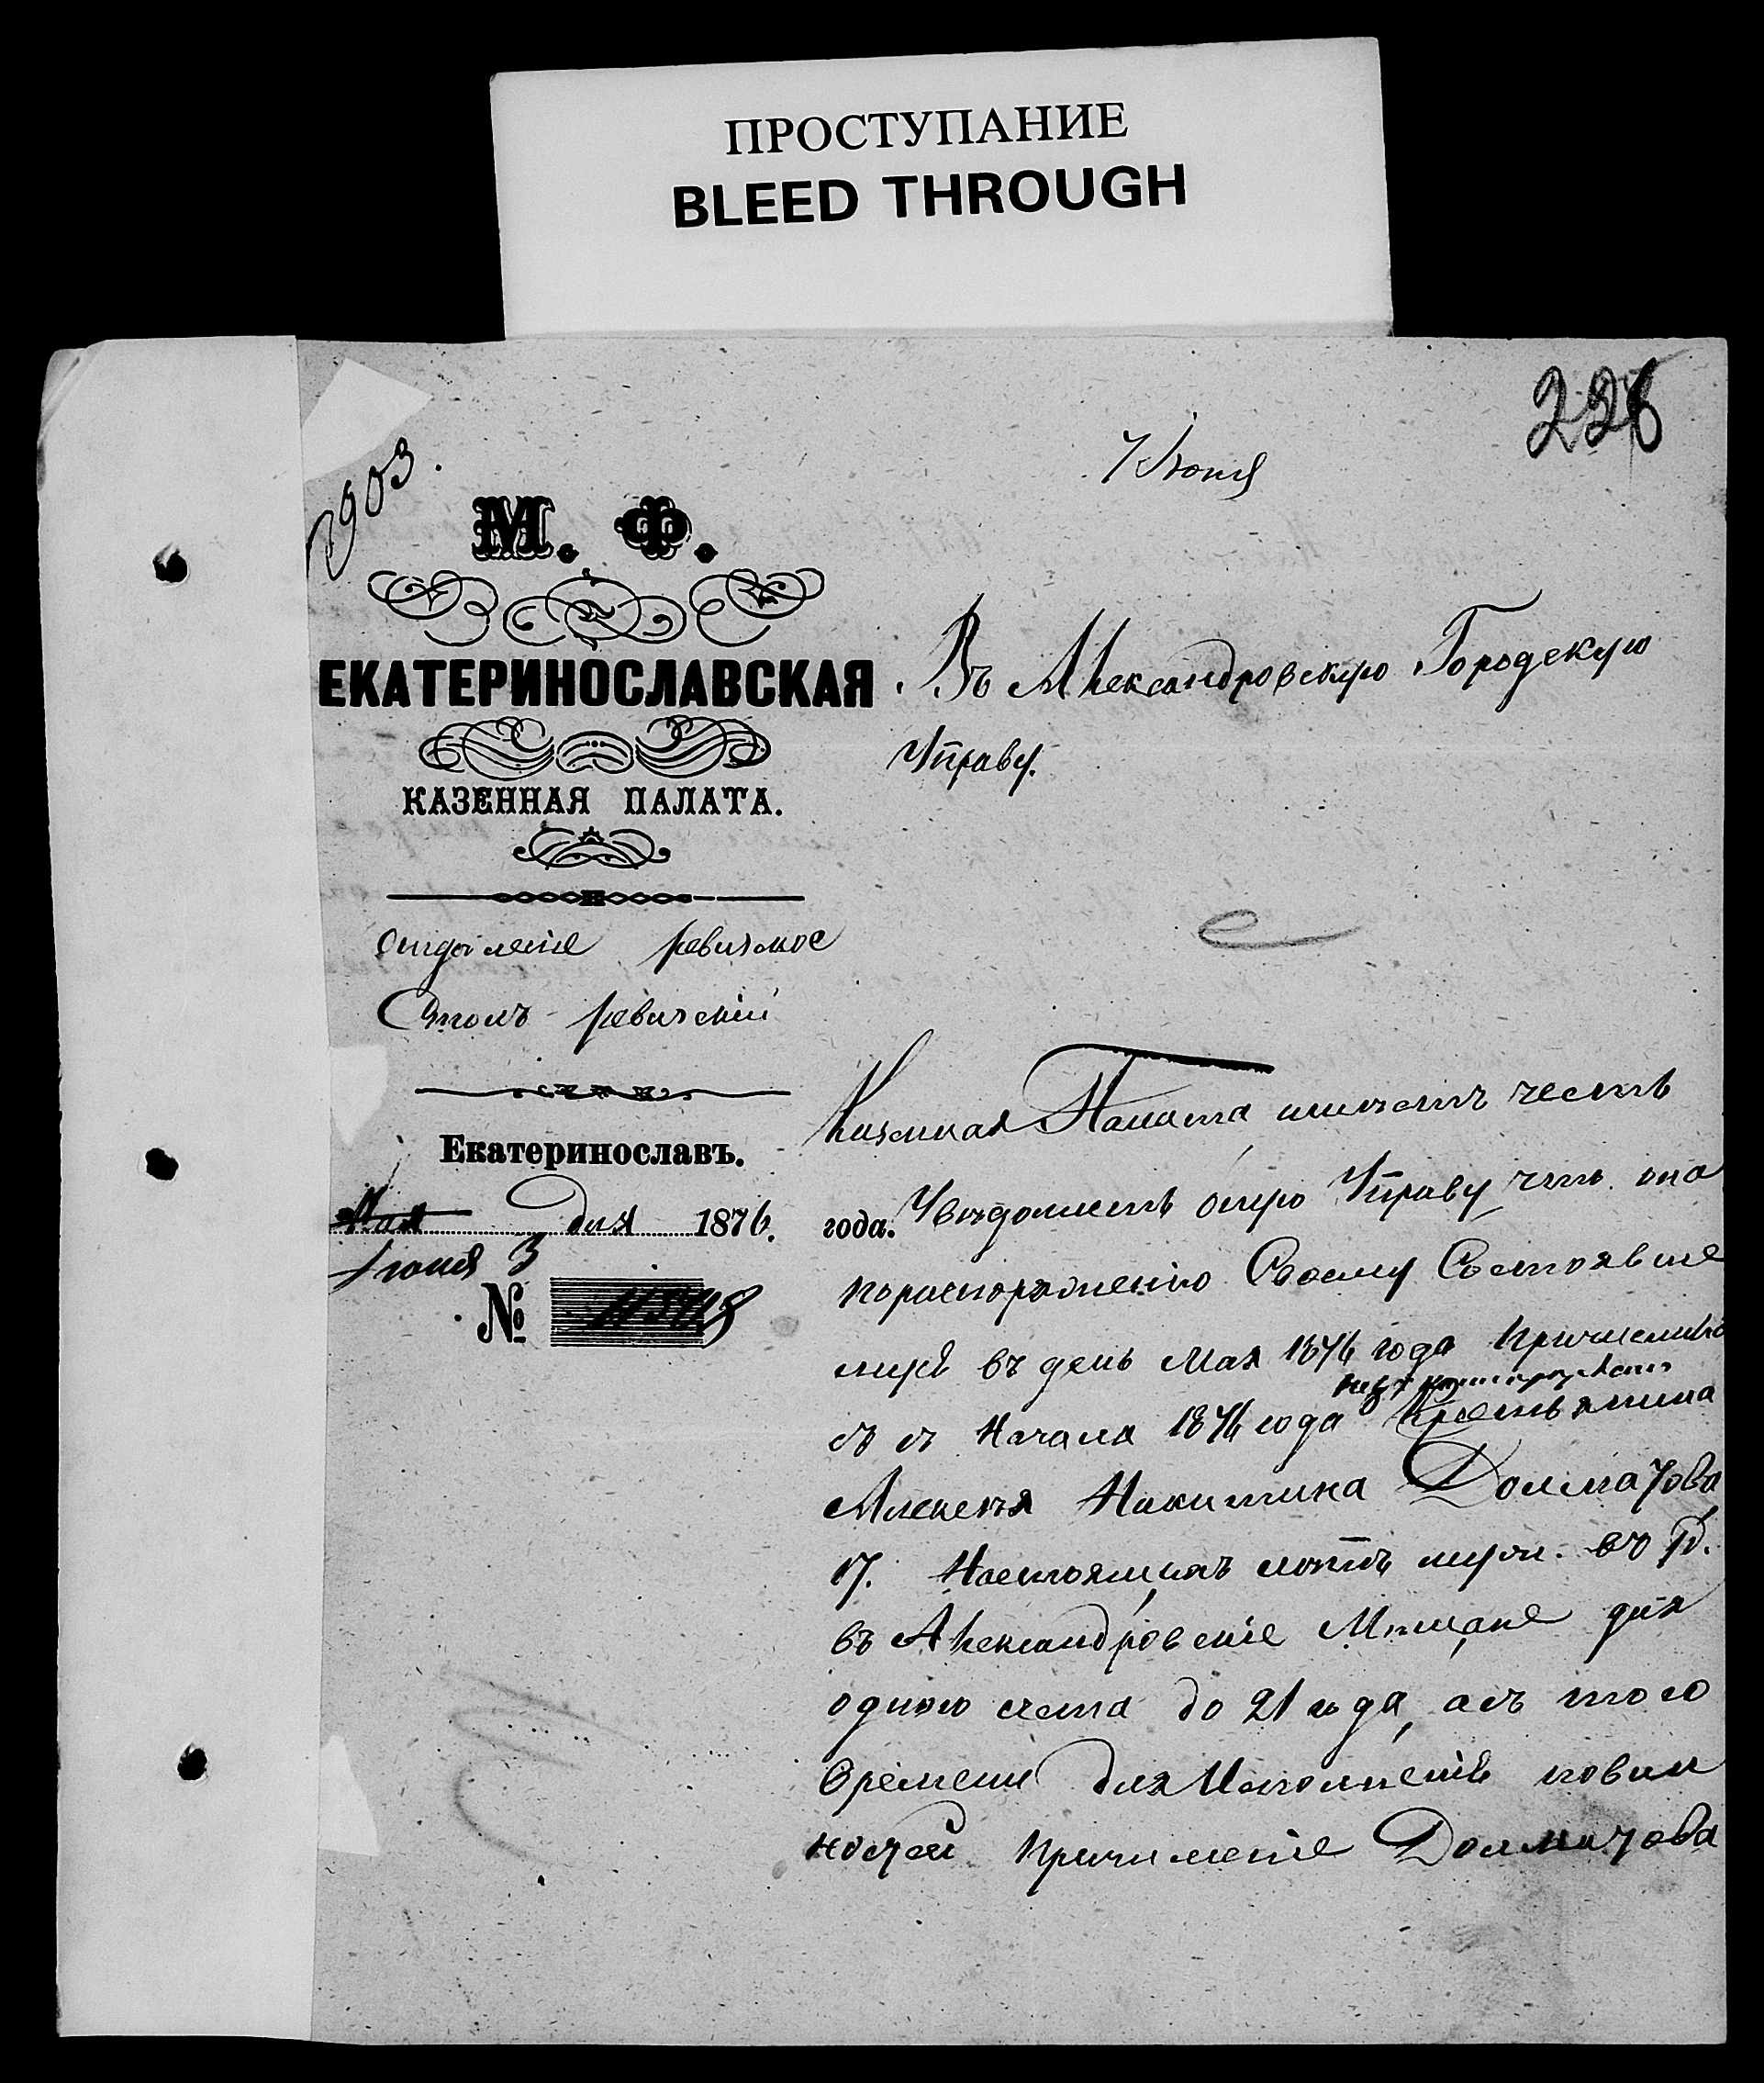 ПРОСТУПАНИЕ
BLEED THROUGH
226
7 Июня
1903.
М. Ф.
ЕКАТЕРИНОСЛАВСКАЯ
КАЗЕННАЯ ПАЛАТА.
Отдѣленіе ревизское
Столъ ревизскій
Екатеринославъ.
Мая дня 1876 года.
Іюня 3
№
Въ Александровскую Городскую
Управу.
Казенная Палата имѣетъ честь
Увѣдомить оную Управу что она
по распоряженію Своему Состоявше
муся въ день Мая 1876 года Причислила
съ Начала 1876 года Крестьянина
Алексѣя Никитина Долматова
17. Настоящихъ лѣтъ муж. въ Г.
въ Александровскіе Мѣщане для
одного счета до 21 года, а съ того
Времени для Исполненія повин
ностей Причисленіе Долматова